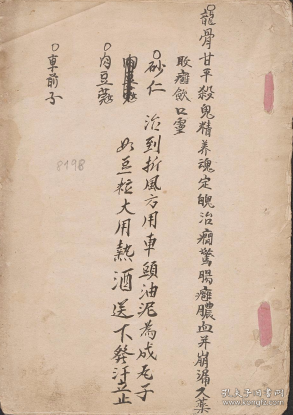 ○龍骨甘平殺鬼精养魂定魄治癇驚腸癰膿血并崩漏久藥
收癰歛口靈
○砂仁 治到折風方用車頭油泥為成丸子
如豆粒大用熱酒送下發汗立止
○肉豆蔻
○車前子
8198